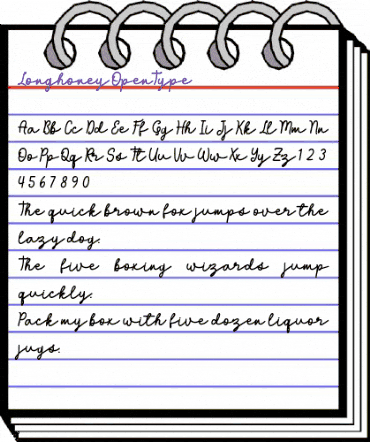 Longhoney OpenType
Aa Bb Cc Dd Ee Ff Gg Hh Ii Jj Kk Ll Mm Nn
Oo Pp Qq Rr Ss Tt Uu Vv Ww Xx Yy Zz 1 2 3
4 5 6 7 8 9 0
The quick brown fox jumps over the
lazy dog.
The five boxing wizards jump
quickly.
Pack my box with five dozen liquor
jugs.